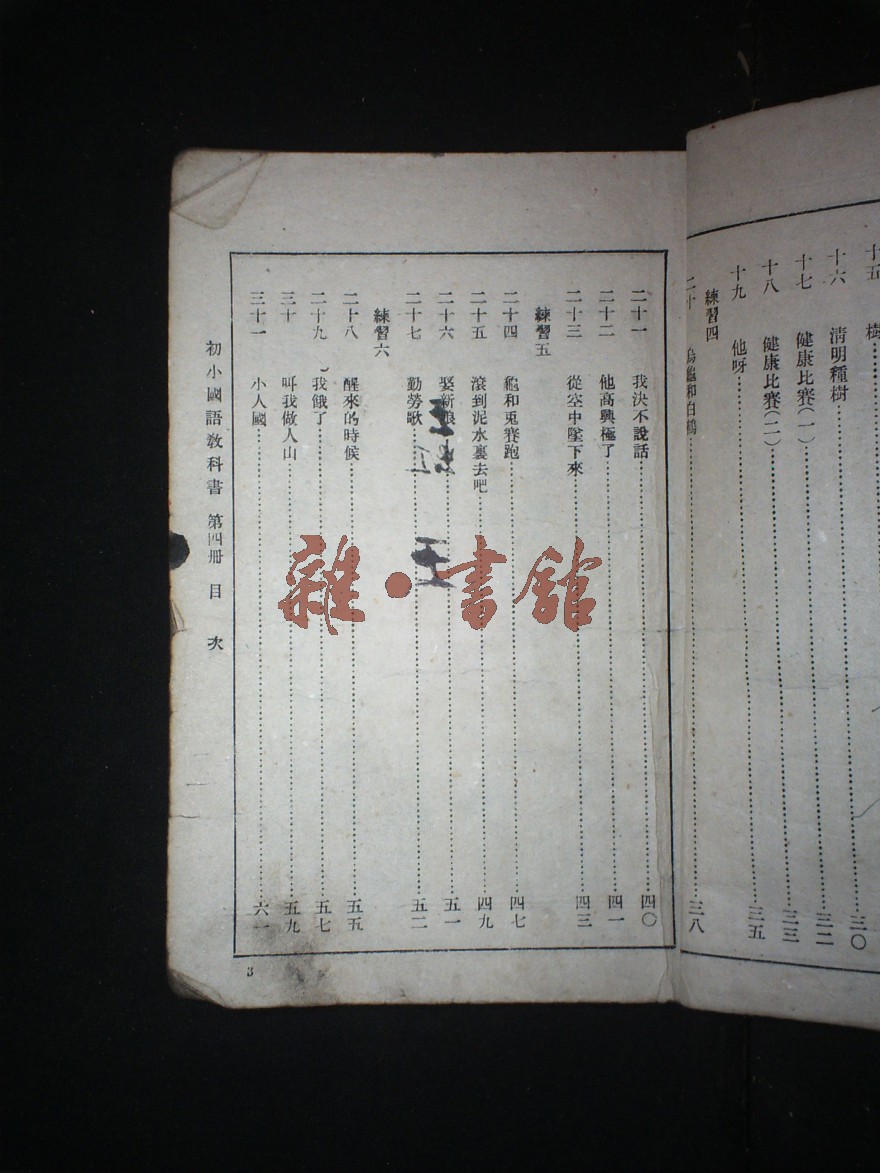 樹……三〇
十六 清明種樹……三二
十七 健康比賽(一)……三三
十八 健康比賽(二)
十九 他呀……三五
練習四
二十 烏龜和白鶴……三八
二十一 我決不說話……四〇
二十二 他高興極了……四一
二十三 從空中墜下來……四三
練習五
二十四 龜和兎賽跑……四七
二十五 滾到泥水裏去吧……四九
二十六 娶新娘……五一
二十七 勤勞歌……五二
練習六
二十八 醒來的時候……五五
二十九 我餓了……五七
三十 叫我做人山……五九
三十一 小人國……六一
初小國語教科書 第四冊 目次
3
雜·書館